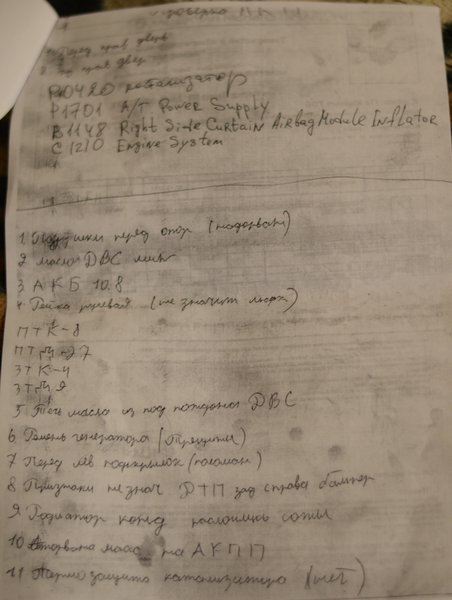 Перед прав дверь
P0420 катализатор
P1701 A/T Power Supply
B1148 Right Side Curtain Airbag Module Inflator
C1210 Engine System
1 Подушки перед опор (надорван)
2 масло ДВС мин
3 АКБ 10.8
4 Рейка рулевая (не значит люфт)
ПТ К-8
ПТ Д-27
ЗТ К-4
ЗТ Д 9
5 Течь масла из под поддона ДВС
6 Ремень генератора (трещины)
7 Перед лев подкрылок (поломан)
8 Признаки незнач ДТП зад справа бампер
9 Радиатор конд соты
10 масло на АКПП
11 Термозащита катализатора (нет)